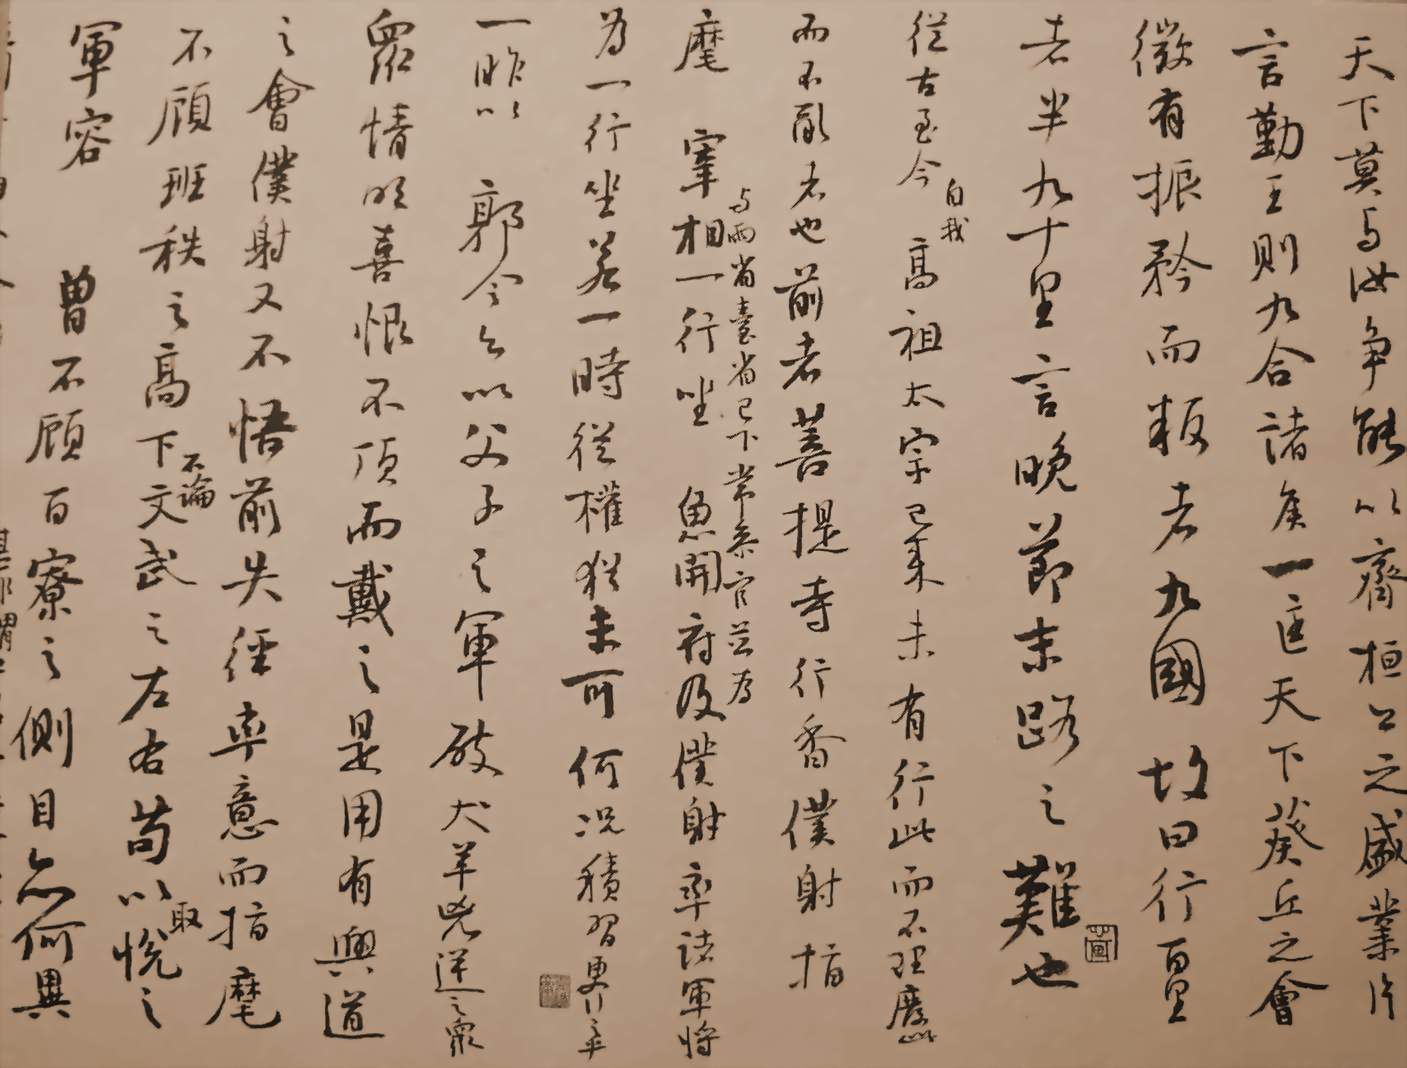 天下莫与汝争能以齊桓公之盛業片
言勤王則九合諸侯一匡天下葵丘之會
微有振矜而叛者九國故曰行百里
者半九十里言晚節末路之難也
從古至今自我高祖太宗已来未有行此而不理廢此
而不亂者也前者菩提寺行香僕射指
麾宰相与兩省臺省已下常参官並為一行坐魚開府及僕射率諸軍將
為一行坐若一時從權猶未可何況積習更行之乎
一昨以郭令公以父子之軍破犬羊兇逆之衆
衆情欣喜恨不頂而戴之是用有興道
之會僕射又不悟前失徑率意而指麾
不顧班秩之高下不論文武之左右苟以取悅
軍容曾不顧百寮之側目亦何異